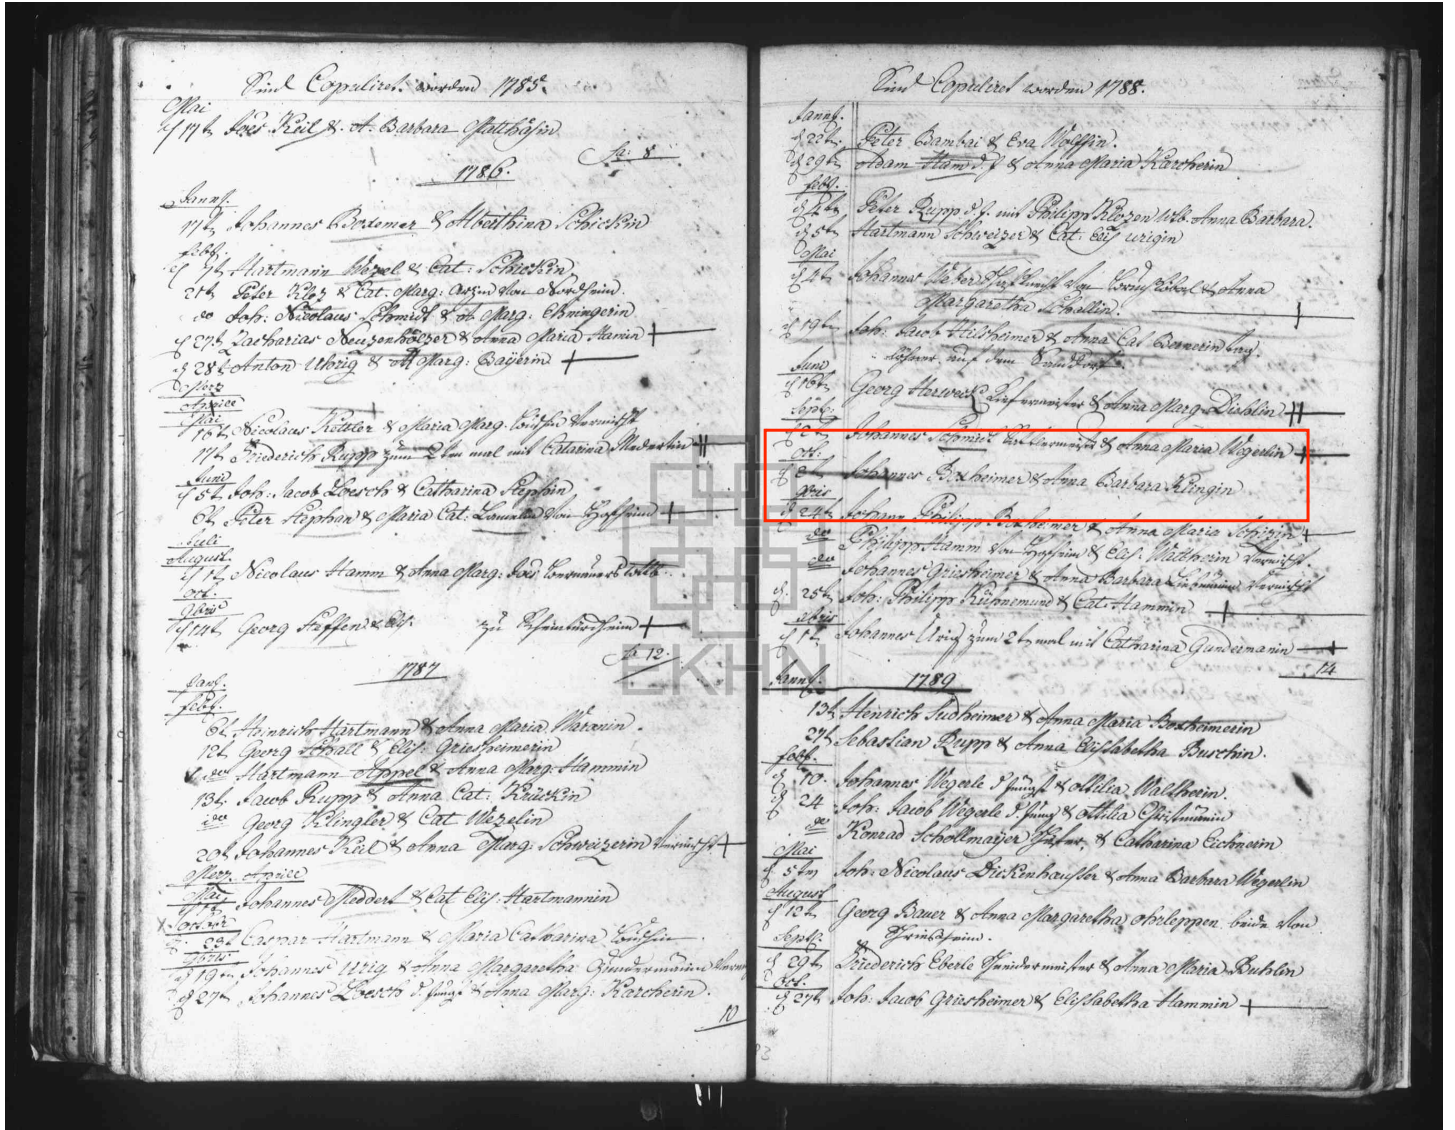 Sind Copuliret worden 1785.
Mai
17t Joes Keil & A. Barbara Matthäsin
Sa: 8
1786.
Jannf.
17t Johannes Boxemer & Albertina Schickin
Febf.
7t Hartmann Wezel & Cat: Schickin
21t Peter Kloz & Cat. Marg: von Nordheim
do Joh: Nicolaus Schmidt & A Marg: Ehmingerin
27t Zacharias Neuzenhölzer & Anna Maria Hamin
28t Anton Uhrig & A Marg: Bayerin
Merz
Aprill
Mai
16t Nicolaus Kettler & Maria Marg.
17t Friederich Rupp zum 2ten mal mit Catarina Medertin
Juni
5t Joh: Jacob Loesch & Catharina Stephin
6t Peter Stephan & Maria Cat: von Hofheim
Juli
August
1t Nicolaus Hamm & Anna Marg:
Oct.
9bris
14t Georg Steffen & Elis. zu
Sa 12.
1787
Janf.
Febf.
6t Heinrich Hartmann & Anna Maria
12t Georg Schall & Elis. Griesheimerin
do Hartmann Appel & Anna Marg: Hammin
13t Jacob Rupp & Anna Cat: Krückin
do Georg Klingler & Cat Wezelin
20t Johannes Keil & Anna Marg: Schweizerin
Merz Aprill
Mai
Johannes Meddert & Cat Elis: Hartmannin
Octobr
23t Caspar Hartmann & Maria Catharina
9bris
19tn Johannes Urig & Anna Margaretha Gundermännin
27t Johannes Loesch d. Jung & Anna Marg: Karcherin.
10
Sind Copuliret worden 1788.
Jannf.
22t Peter Bambai & Eva Wolffin.
29t Adam Ham d. J & Anna Maria Karcherin
Febf.
4t Peter Rupp d. J. mit Philipp Klozen Wtb. Anna Barbara.
5t Hartmann Schweizer & Cat: Elis Urigin
Mai
4t Johannes Weber von & Anna
Margaretha Schallin.
19tn Joh: Jacob Hilsheimer & Anna Cat Bernerin
auf dem
Juni
16t Georg Herweck Kiefermeister & Anna Marg. Diehlin
Septf.
2t Johannes Schmidt & Anna Maria Wegerlin
Oct:
8t Johannes Boxheimer & Anna Barbara Klingin
9bris
24t Johann Philipp Boxheimer & Anna Maria Schizin
do Philipp Hamm von Hofheim & Elis.
do Johannes Griesheimer & Anna Barbara
25t Joh: Philipp Kühnemund & Cat: Hammin
xbris
1t Johannes Urig zum 2t mal mit Catharina Gundermanin
14
Jannf. 1789
13t Heinrich Sudheimer & Anna Maria Boxheimerin
27t Sebastian Rupp & Anna Elisabetha Buschin.
Febf.
10. Johannes Wegerle d Jüngst & Ottilia Waltherin.
24 Joh: Jacob Wegerle d. Jung & Ottilia
do Konrad Schollmayer & Catharina Eichnerin
Mai
5tn Joh: Nicolaus Dickenhausler & Anna Barbara Wegerlin
August
12t Georg Bauer & Anna Margaretha beide von
Septf.
29t Friederich Eberle Schneidermeister & Anna Maria Buhlin
Oct.
27t Joh: Jacob Griesheimer & Elisabetha Hammin
EKHN